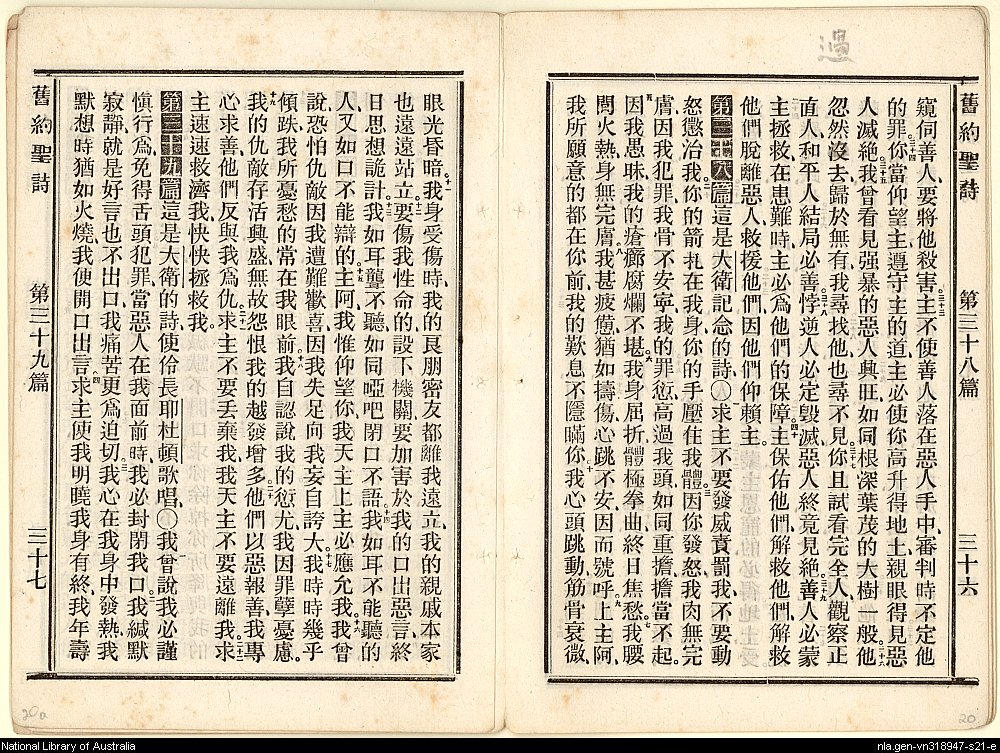 過
舊約聖詩 第三十八篇 三十六
窺伺善人、要將他殺害。三十三主不使善人落在惡人手中、審判時不定他
的罪。三十四你當仰望主、遵守主的道、主必使你高升得地土、親眼得見惡
人滅絕。三十五我曾看見强暴的惡人興旺、如同根深葉茂的大樹一般。三十六他
忽然沒去歸於無有、我尋找他、他也尋不見。三十七你且試看完全人、觀察正
直人、和平人結局必善。三十八悖逆人必定毀滅、惡人終竟見絕。三十九善人必蒙
主拯救、在患難時、主必爲他們的保障。四十主保佑他們、解救他們、解救
他們脫離惡人、救援他們、因他們仰賴主。
第三十八篇 這是大衛記念的詩。○一求主不要發威責罰我、不要動
怒懲治我。二你的箭扎在我身、你的手壓住我體。三因你發怒、我肉無完
膚、因我犯罪、我骨不安寧。四我的罪愆高過我頭、如同重擔擔當不起。
五因我愚昧、我的瘡癤腐爛不堪。六我身屈折、體極拳曲、終日焦愁。七我腰
悶火熱、身無完膚。八我甚疲憊、猶如擣傷、心跳不安、因而號呼。九主阿、
我所願意的都在你前、我的歎息不隱瞞你。十我心頭跳動、筋骨衰微、
眼光昏暗。十一我身受傷時、我的良朋密友都離我遠立、我的親戚本家
也遠遠站立。十二要傷我性命的、設下機關、要加害於我的、口出惡言、終
日思想詭計。十三我如耳聾不聽、如同啞吧閉口不語。十四我如耳不能聽的
人、又如口不能辯的。十五主阿、我惟仰望你、我天主上主必應允我。十六我曾
說、恐怕仇敵因我遭難歡喜、因我失足向我妄自誇大。十七我時時幾乎
傾跌、我所憂愁的常在我眼前。十八我自認說我的愆尤、我因罪孽憂慮。
十九我的仇敵存活興盛、無故怨恨我的越發增多。二十他們以惡報善、我專
心求善、他們反與我爲仇。二十一求主不要丟棄我、我天主不要遠離我。二十二求
主速速救濟我、快快拯救我。
第三十九篇 這是大衛的詩、使伶長耶杜頓歌唱。○一我曾說、我必謹
慎行爲、免得舌頭犯罪、當惡人在我面前時、我必封閉我口。二我緘默
寂靜、就是好言也不出口、我痛苦更爲迫切。三我心在我身中發熱、我
默想時猶如火燒、我便開口出言。四求主使我明曉我身有終、我年壽
舊約聖詩 第三十九篇 三十七
20a
20
National Library of Australia
nla.gen-vn318947-s21-e